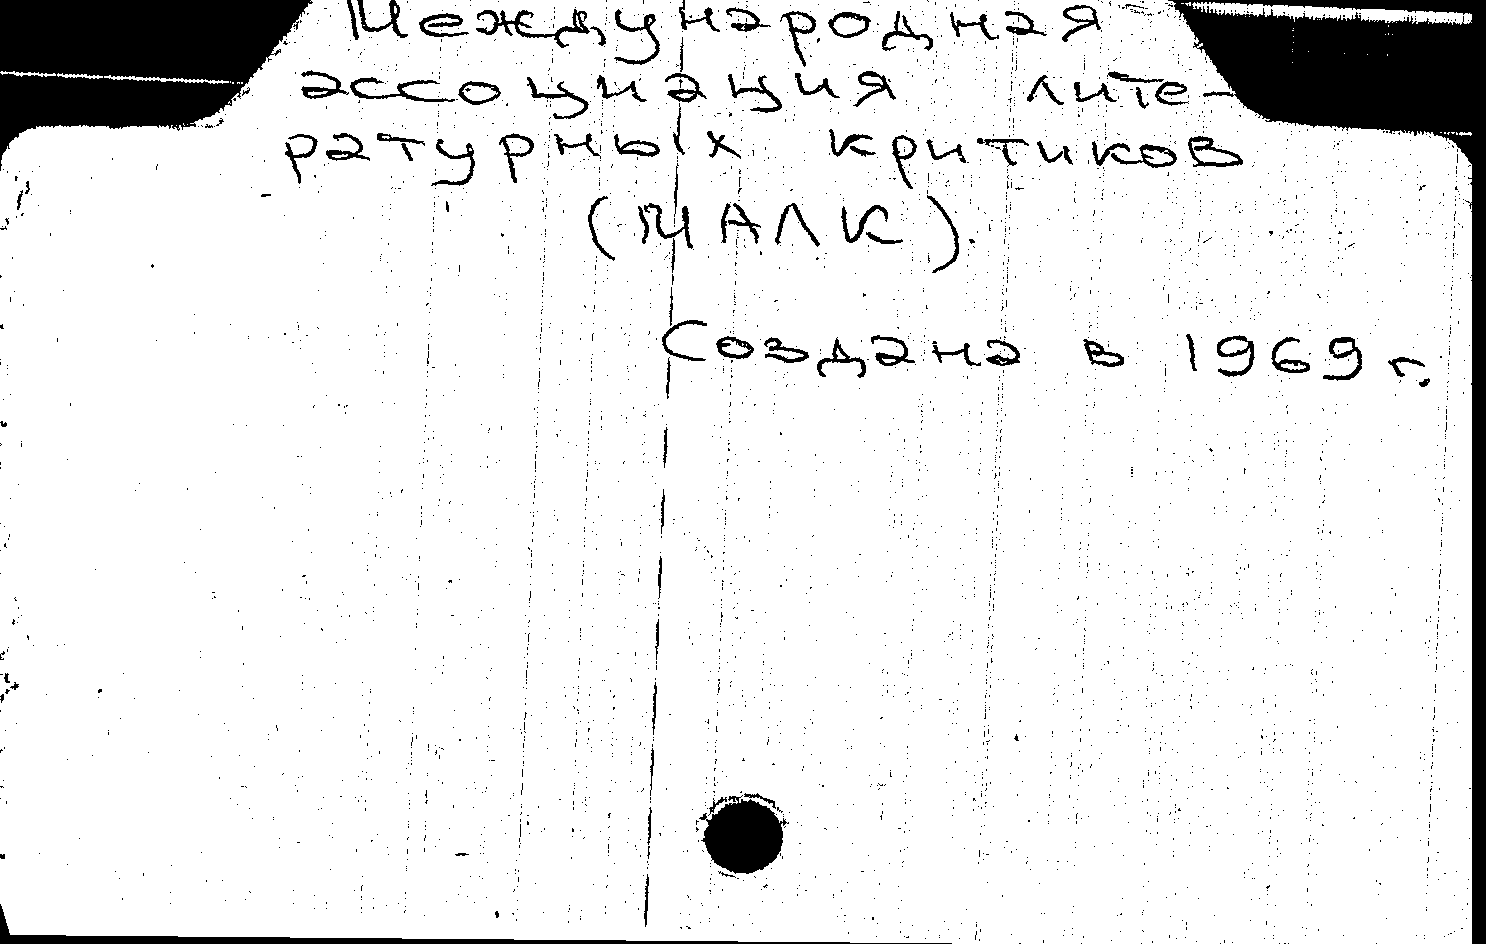 Международная
ассоциация лите-
ратурных критиков
(МАЛК).
Создана в 1969 г.